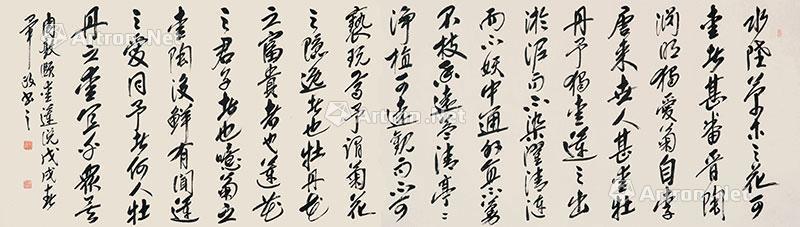 水陸草木之花可
愛者甚蕃晉陶
淵明獨愛菊自李
唐來世人甚愛牡
丹予獨愛蓮之出
淤泥而不染濯清漣
而不妖中通外直不蔓
不枝香遠益清亭亭
淨植可遠觀而不可
褻玩焉予謂菊花
之隱逸者也牡丹花
之富貴者也蓮花
之君子者也噫菊之
愛陶後鮮有聞蓮
之愛同予者何人牡
丹之愛宜乎眾矣
周敦頤愛蓮說戊戌春
Artron.Net
Artron.Net
Artron.Net